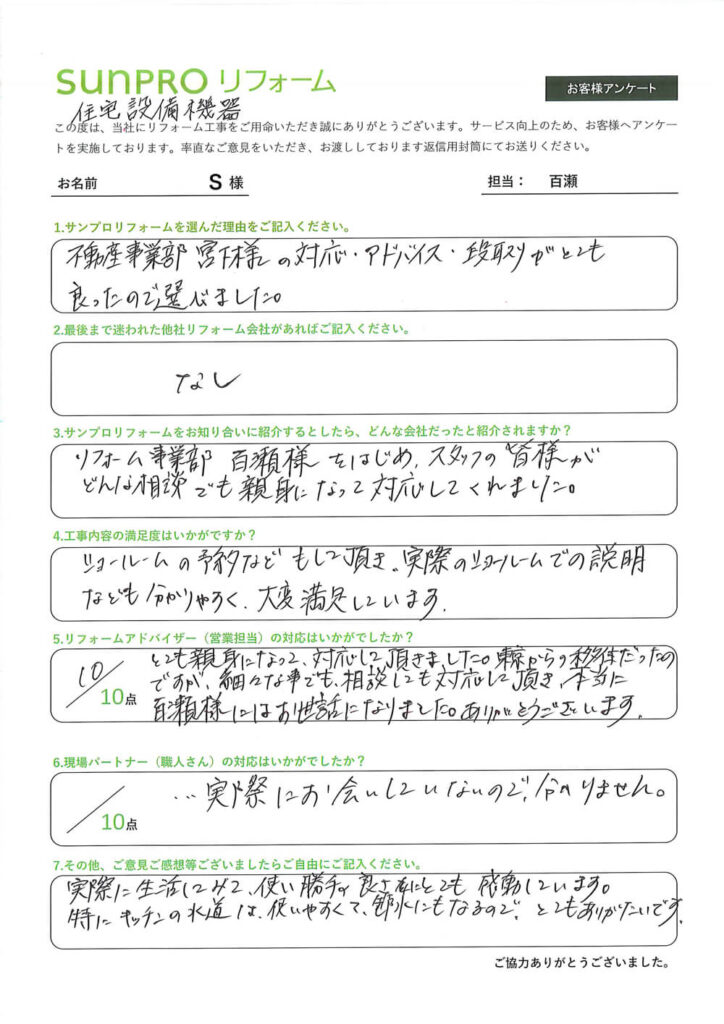 SUNPRO リフォーム
お客様アンケート
住宅設備機器
この度は、当社にリフォーム工事をご用命いただき誠にありがとうございます。サービス向上のため、お客様へアンケー
トを実施しております。率直なご意見をいただき、お渡ししております返信用封筒にてお送りください。
お名前 S 様 担当： 百瀬
1.サンプロリフォームを選んだ理由をご記入ください。
不動産事業部 宮下様の対応・アドバイス・段取りがとても
良ったので選びました。
2.最後まで迷われた他社リフォーム会社があればご記入ください。
なし
3.サンプロリフォームをお知り合いに紹介するとしたら、どんな会社だったと紹介されますか？
リフォーム事業部 百瀬様をはじめ、スタッフの皆様が
どんな相談でも親身になって対応してくれました。
4.工事内容の満足度はいかがですか？
ショールームの予約などもして頂き、実際のショールームでの説明
なども分かりやすく、大変満足しています。
5.リフォームアドバイザー（営業担当）の対応はいかがでしたか？
10/10点
とても親身になって、対応して頂きました。東京からの移住だったの
ですが、細々な事でも、相談しても対応して頂き、本当に
百瀬様にはお世話になりました。ありがとうございます。
6.現場パートナー（職人さん）の対応はいかがでしたか？
/10点
…実際にお会いしていないので、分かりません。
7.その他、ご意見ご感想等ございましたらご自由にご記入ください。
実際に生活してみて、使い勝手の良さなにとても感動しています。
特にキッチンの水道は、使いやすくて、節水にもなるので、とてもありがたいです。
ご協力ありがとうございました。